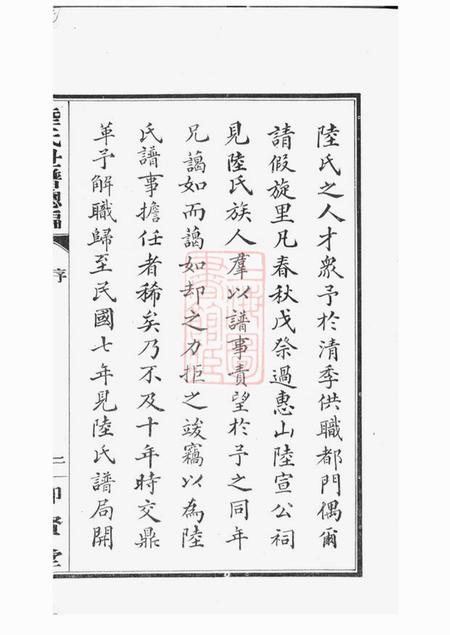 陸氏之人才衆予於清季供職都門偶爾
請假旋里凡春秋戊祭過惠山陸宣公祠
見陸氏族人羣以譜事責望於予之同年
兄藹如而藹如却之力拒之竣竊以為陸
氏譜事擔任者稀矣乃不及十年時交鼎
革予解職歸至民國七年見陸氏譜局開
序
二